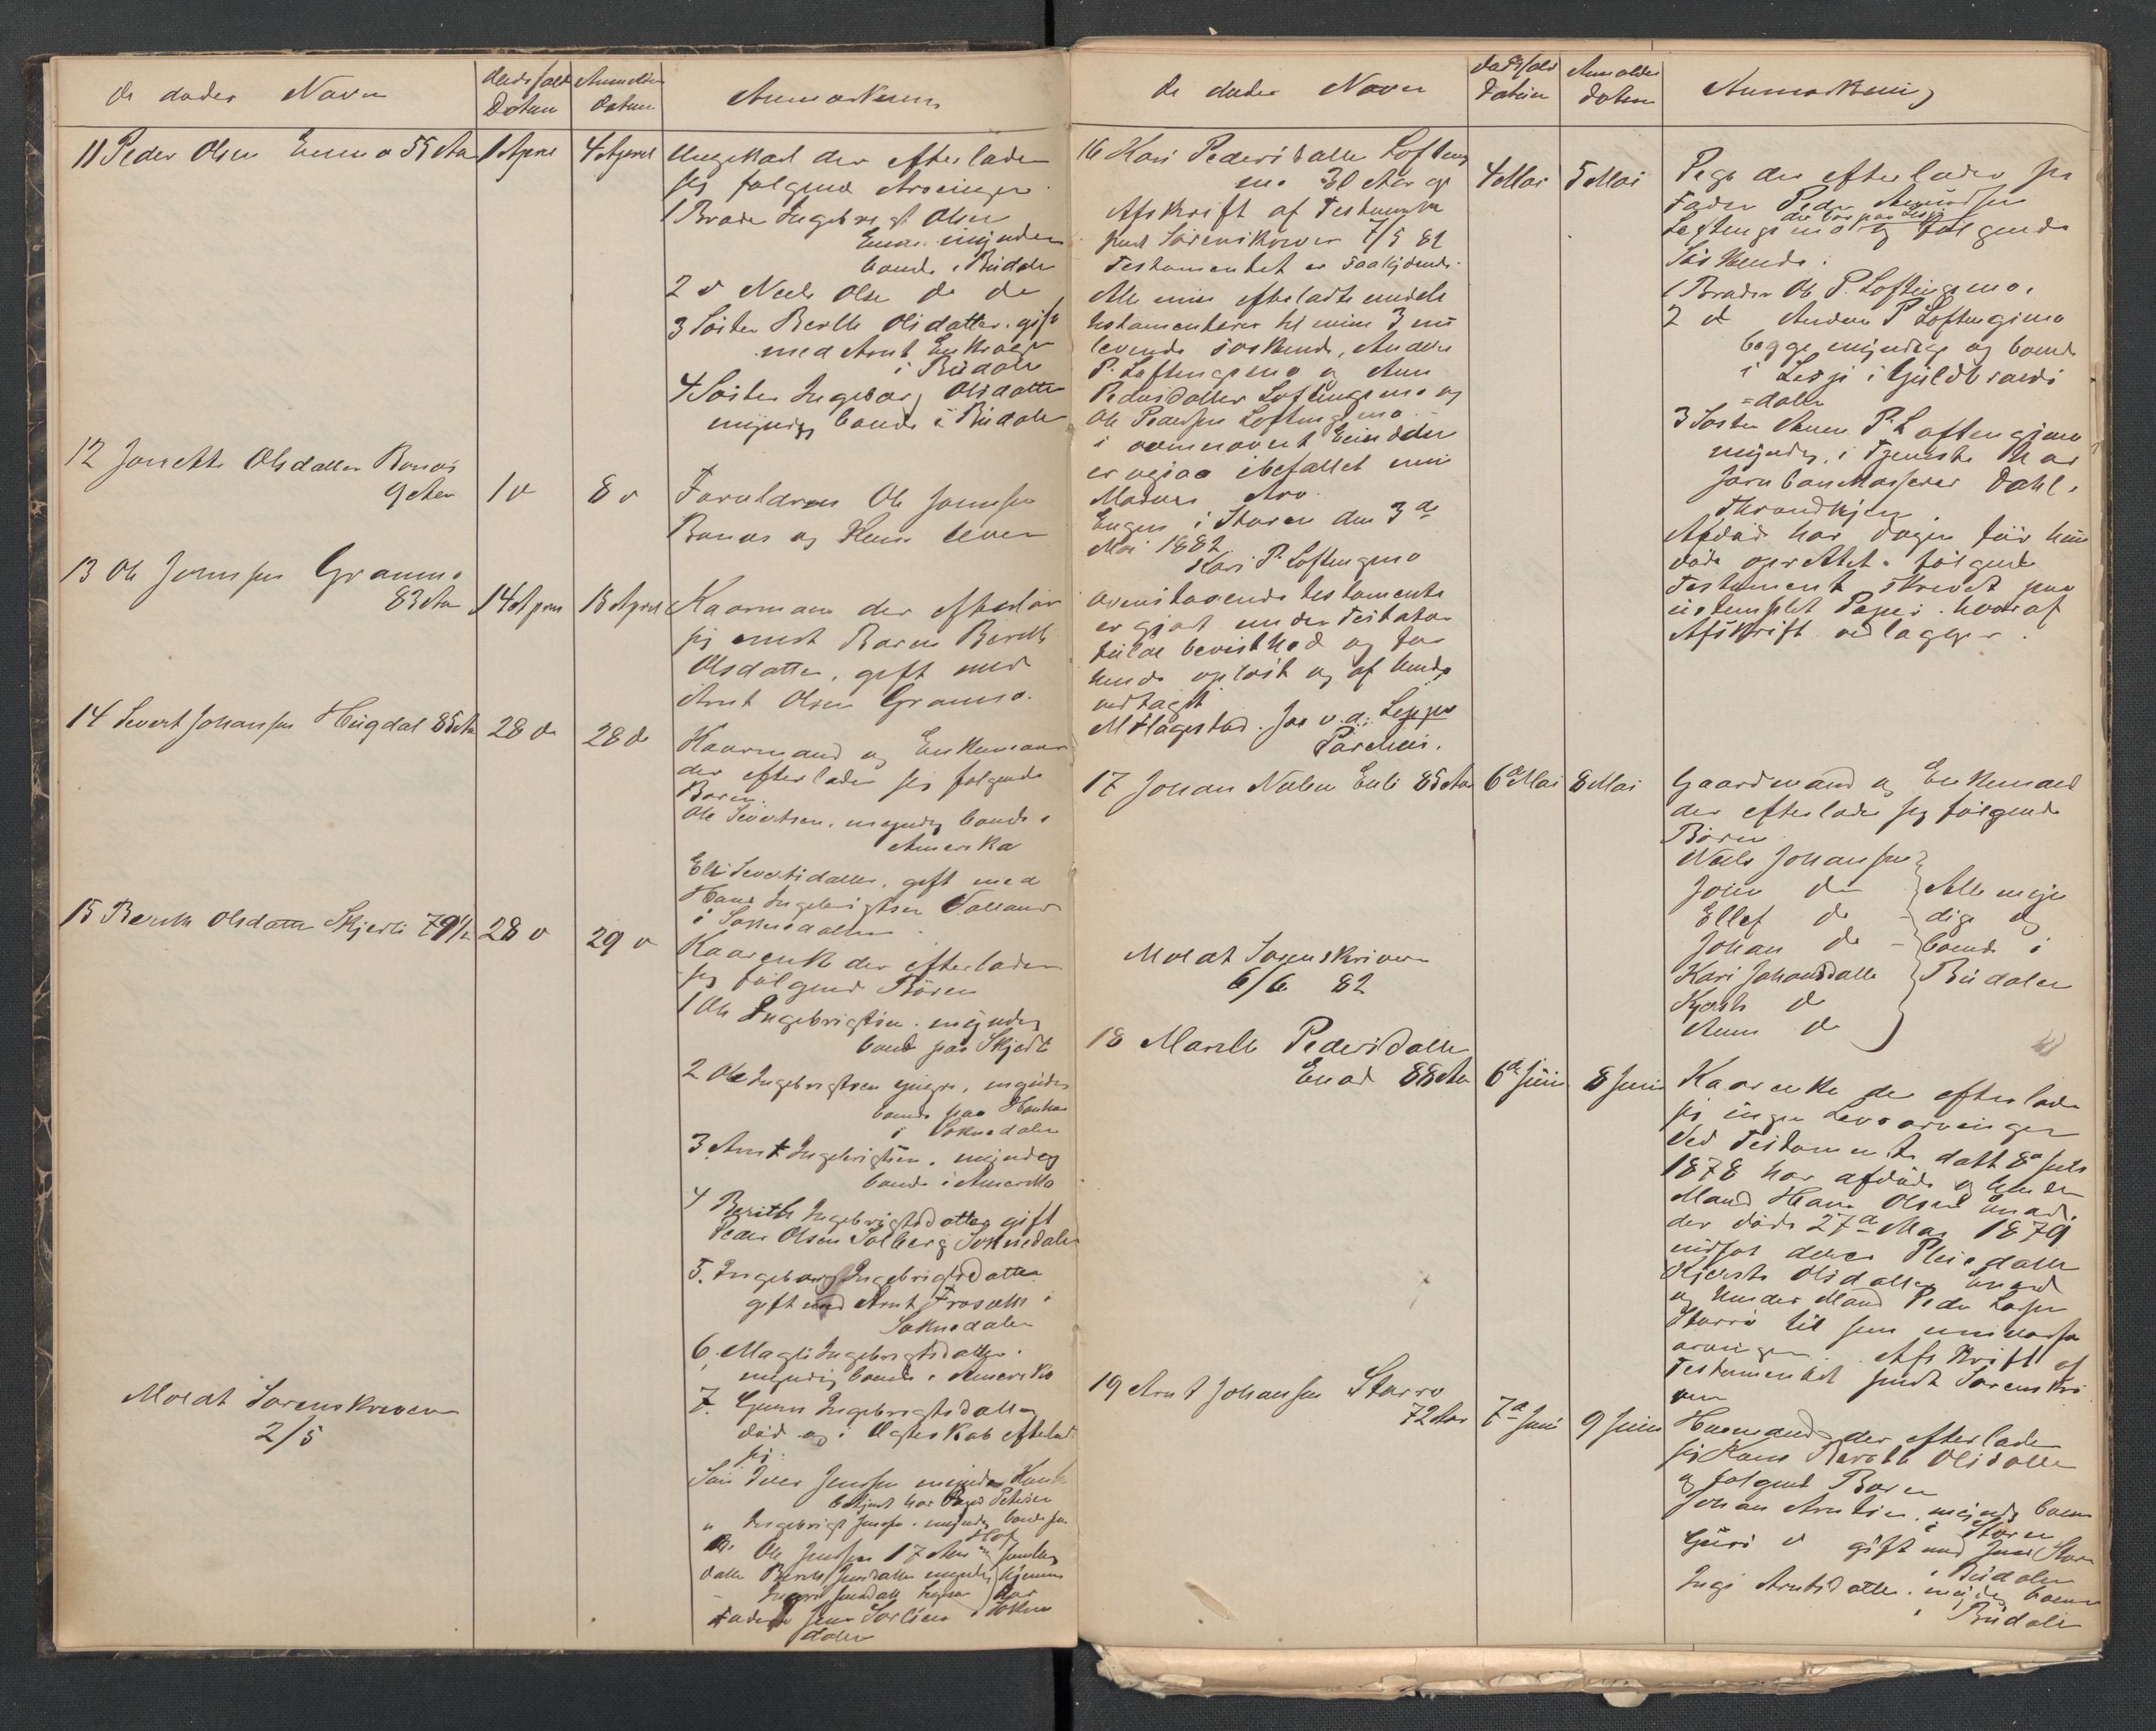 de dødes Navn
Døds fald Datum
Anmeldes datum
Anmærkning
11 Peder Olsen Enmo 55 Aar
1 April
4 April
Ungekarl der efterlader
sig følgend Arvinger
1 Broder Ingebrigt Olsen
Enmo. myndig
boende i Budalen
2 d Neels Olsen do do
3 Søster Berith Olsdatter. gift
med Arnt
i Budalen
4 Søster Ingebor Olsdatter
myndig boende i Budalen
12 Jonette Olsdatter Bonøs
9 Aar
1 d
8 d
Foreldrene Ole Jonsen
Bonøs og Kone lever
13 Ole Jonsen Grammo
83 Aar
14 April
15 April
Kaarmann der efterlader
sig enest Baren Berith
Olsdatter, gift med
Arnt Olsen Grammo.
14 Sivert Johansen Hugdal 85 Aar
28 do
28 do
Kaarmand og Enkemann
der efterlader sig følgende
Børn.
Ole Sivertsen. myndig boende i
Amerika
Eli Sivertsdatter, gift med
Hans Ingebrigtsen
i Soknedalen
15 Berith Olsdatter Skjerli 79 1/2
28 d
29 d
Kaarenke der efterlader
sig følgend Børen
1 Ole Ingebrigtsen. myndig
boend paa Skjerli
2 Ole Ingebrigtsen yngre. myndig
boende paa
i Soknedalen
3 Arnt Ingebrigtsen. myndig
boende i Amerika
4 Berith Ingebrigtsdatter gift
Peder Olsen Solberg Soknedalen
5. Ingeborg Ingebrigtsdatter
gift med Arnt Frosæth i
Soknedalen
6. Magli Ingebrigtsdatter.
myndig boende i Amerika
7. Guru Ingebrigtsdatter
død og i Ægteskab efterlad
sig
Søn Iver Jensen myndig
betjent hos Petersen
" Ingebrigt Jensen. myndig boende paa
Hof
Ole Jensen 17 Aar
datter Berith Jensdatter myndig hjemme
Jensdatter hos
Fader Jens Sorlien i Sokne
dalen
Meldt Sorenskriveren
2/5
de dødes Navn
Dødsfald Datum
Anmeldes datum
Anmærkning
16 Kari Pedersdatter Loftengs
mo 30 Aar
4 Mai
5 Mai
Afskrift af Testament
sendt Sørenskriver 7/5 82
Testamentet er saalydende.
Alle mine efterladte midele
testamenteres til mine 3 nu
levende søskende, Anders
P. Loftengsmo og Ann
Pedersdatter Loftengsmo og
Ole Pedersen Loftengsmo.
i ovennævnt
er ogsaa ibefattet min
Moders Arv.
Engen i Støren den 3 de
Mai 1882.
Kari P. Loftengsmo
Ovenstaaende testamente
er gjort under Testator
fulde bevisthed og for
hende oplæst og af hende
vedtaget
M Hagestad. Jos v.d. Lippe
Parelius.
Pige der efterlader sig
Fader Peder Amundsen
der bor paa Lesje
Loftengsmo og følgende
Søskende.
1 Broder Ole P. Loftengsmo.
2 d Anders P Loftengsmo
begge myndige og boende
i Lesje i Guldbrands
=dalen
3 Søster Anne P. Loftengsmo
myndig, i Tjeneste hos
Jernbanekasserer Dahl.
Throndhjem
Afdøde har dagen før hun
døde oprettet følgende
Testament skrevet paa
ustemplet Papir. hvoraf
Afskrift vedlægges.
17 Johan Nilsen Enli 85 Aar
6 d Mai
8 Mai
Gaardmand og Enkemand
der efterlader sig følgende
Børen
Neels Johansen
John do
Ellef do
Johan do
Kari Johansdatter
Kjersti do
Anne do
Alle myn
dige og
boende i
Budalen
Meldt Sorenskriveren
6/6 82
18 Marith Pedersdatter
Enod 88 Aar
6 d Juni
8 Juni
Kaarenke der efterlader
sig ingen Livsarvinger
Ved Testamente datt 8 d Juli
1878 har afdøde og hendes
Mand Hans Olsen Enod.
der døde 27 d Mai 1879
indsat deres Pleiedatter
Kjersti Olsdatter Enod
og hendes Mand Peder Larsen
Storrø til sine universal
arvinger. Afskrift af
Testamentet sendt Sørenskri
ver
19 Arnt Johansen Storrø
72 Aar
7 d Juni
9 Juni
Husmand der efterlader
sig Kone Berith Olsdatter
og følgend Børen
Johan Arntsen. myndig boende
i Støren
Guri d gift med Jens Storrø
i Budalen
Inge Arntsdatter. myndig boende
i Budalen